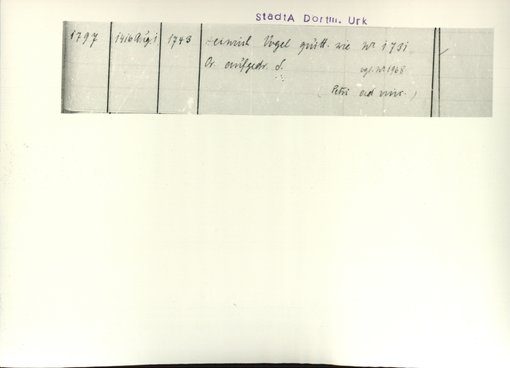 StadtA Dortm. Urk
1797 1416 Aug. 1. 1743 Heinrich Vogel quitt. wie Nr 1731.
Or. aufgedr. S. vgl. Nr 1968
(Petri ad vinc.)